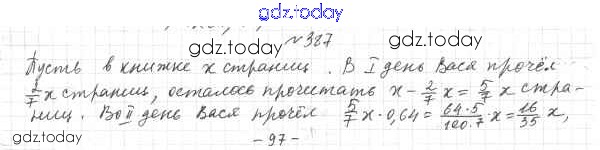 gdz.today
№387
gdz.today gdz.today
Пусть в книжке x страниц. В I день Вася прочёл
2/7 x страниц, осталось прочитать x - 2/7 x = 5/7 x стра-
ниц. Во II день Вася прочёл 5/7 x · 0,64 = 64·5/100·7 · x = 16/35 x,
gdz.today gdz.today
- 97 -